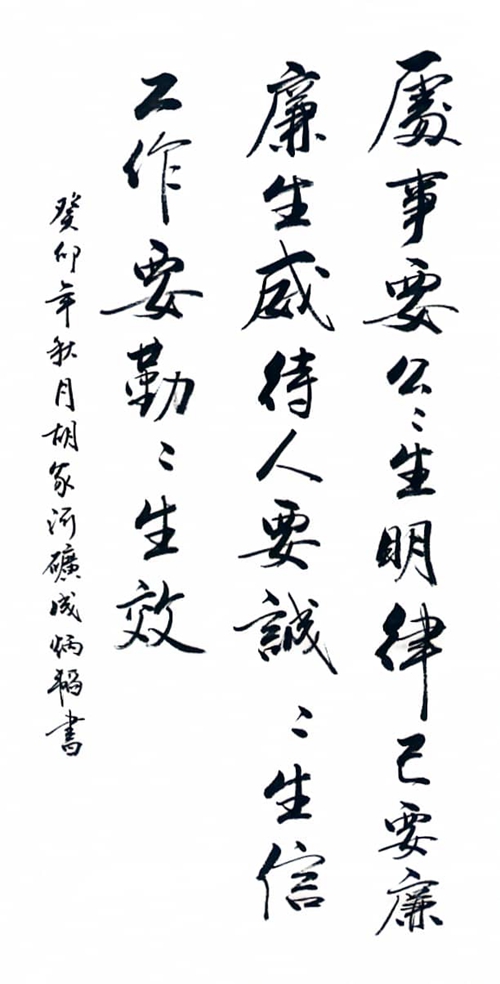 處事要公〻生明律己要廉
廉生威待人要誠〻生信
工作要勤〻生效
癸卯年秋月胡家河礦成炳韜書